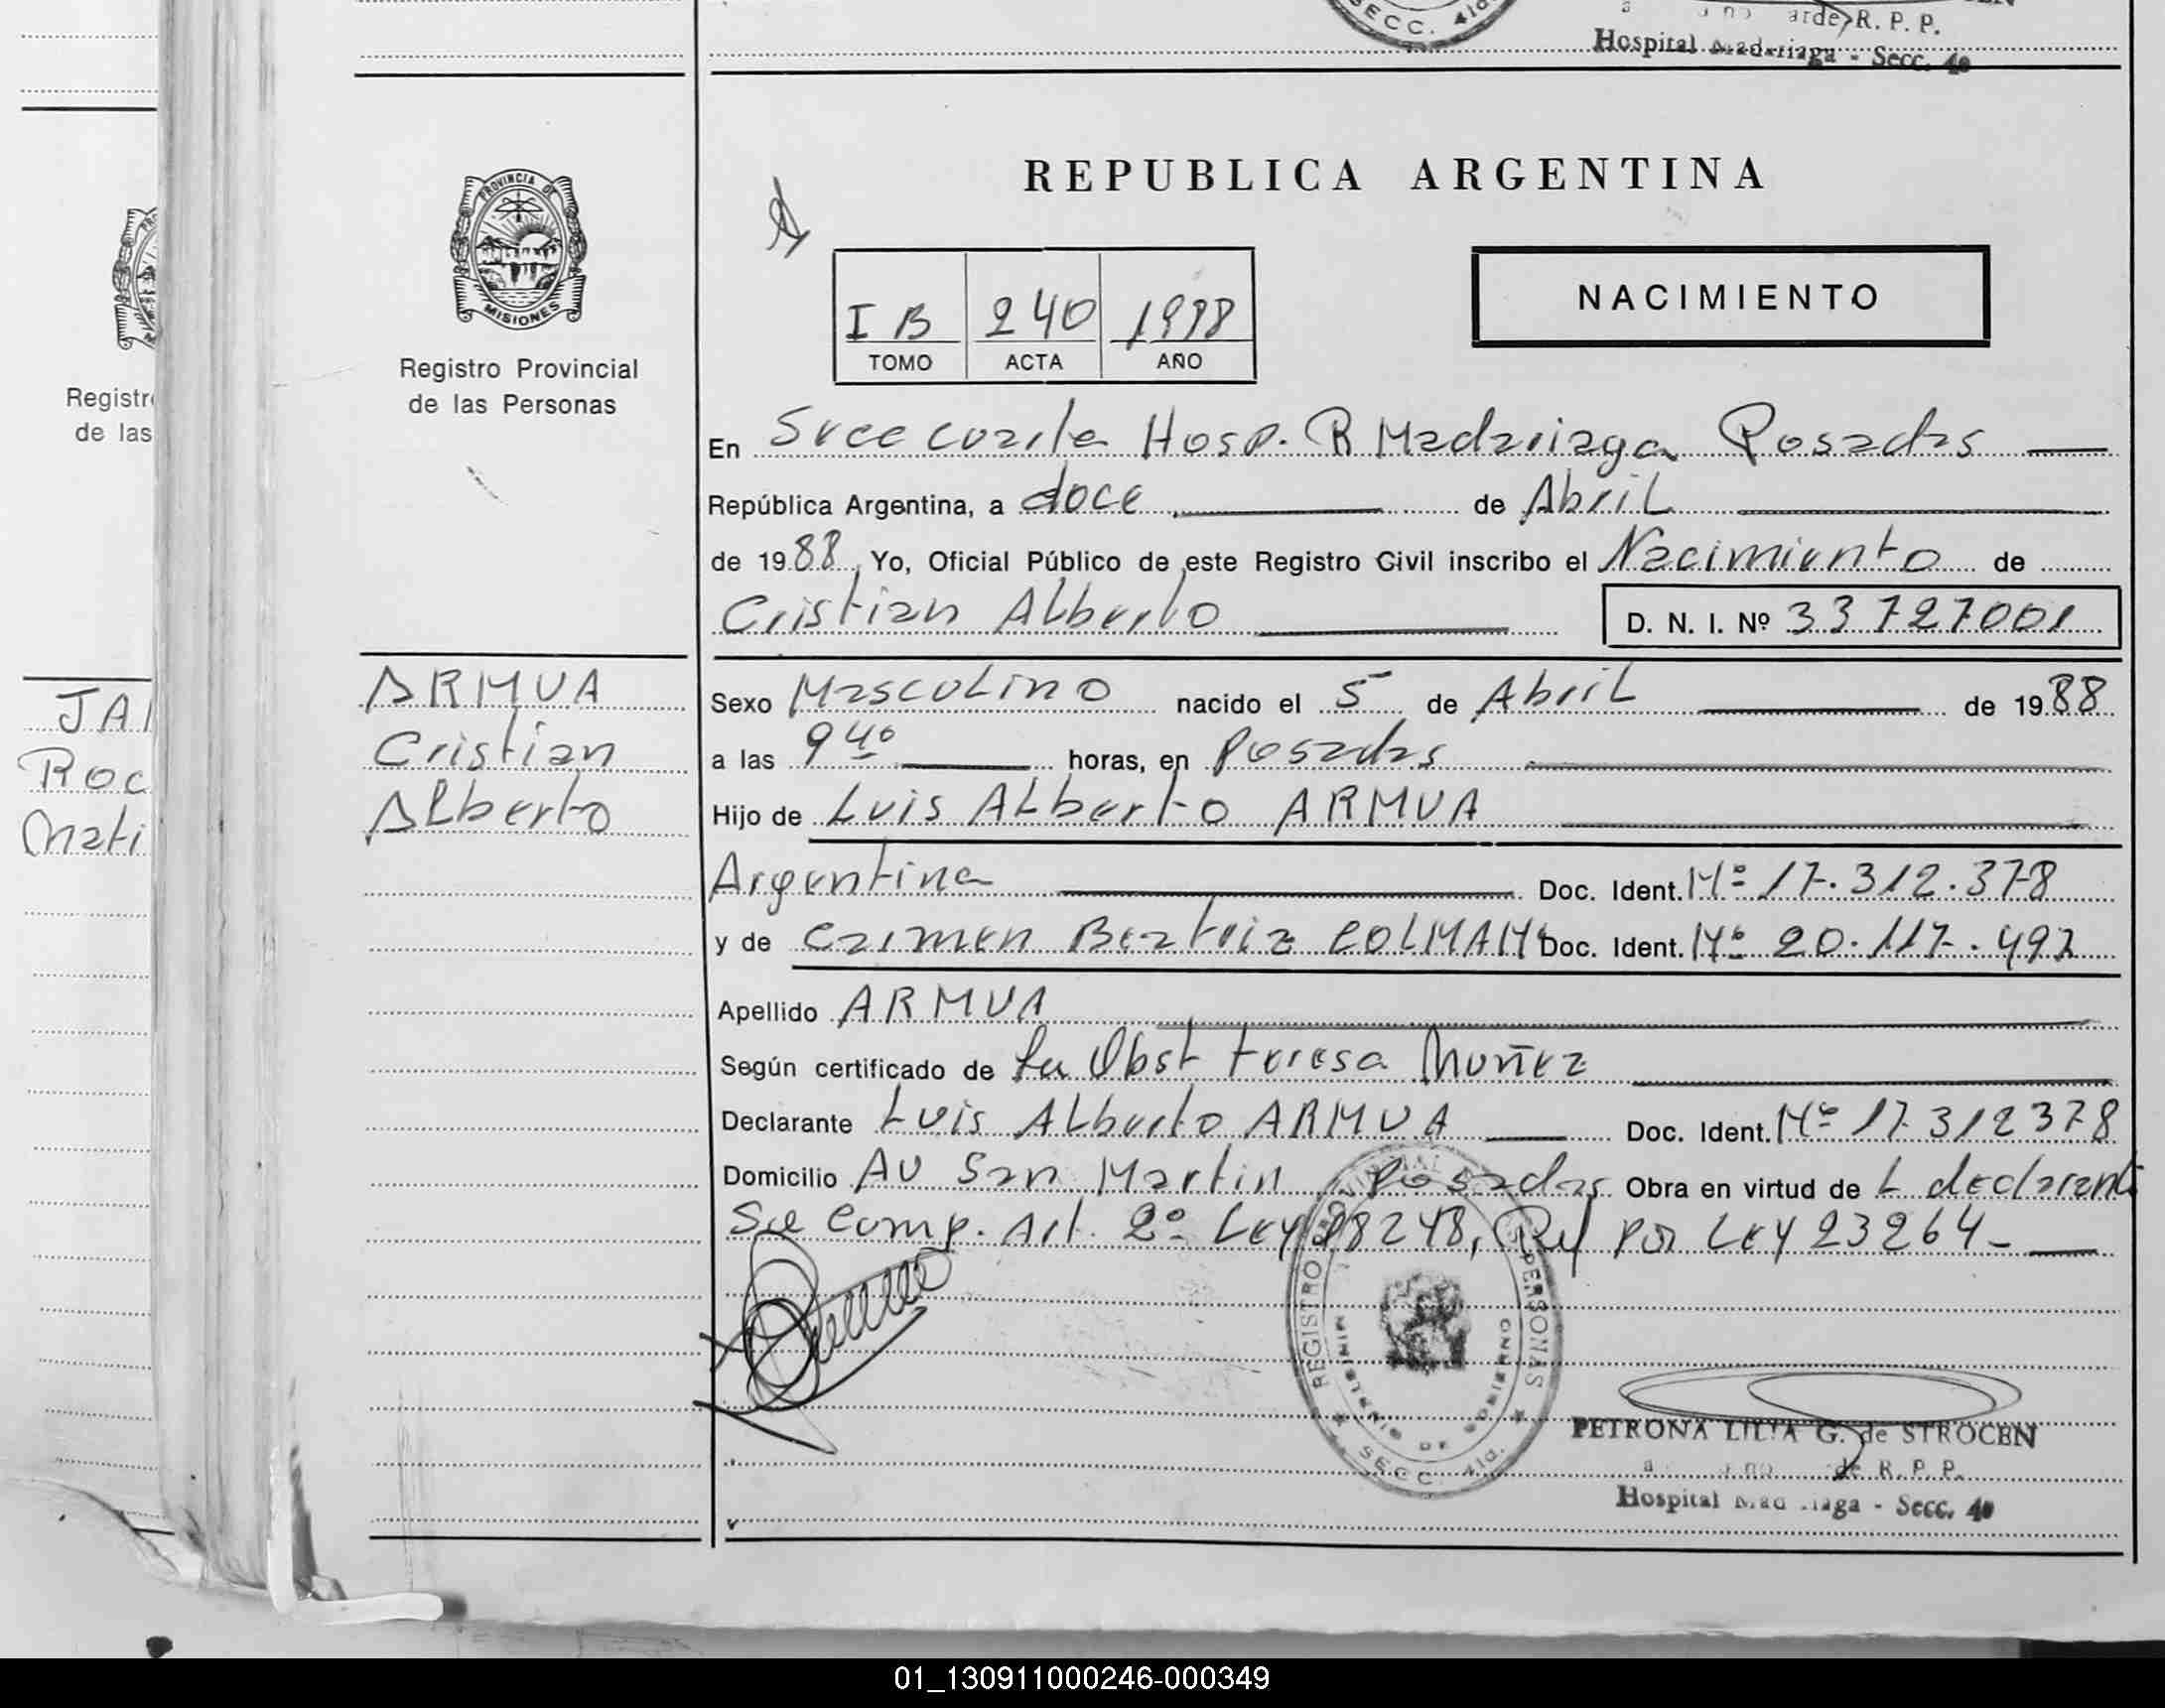 SECC. 4ta.
arde R. P. P.
Hospital Madariaga - Secc. 4a
PROVINCIA DE
MISIONES
Registro Provincial
de las Personas
REPUBLICA ARGENTINA
I B 240 1988
TOMO ACTA AÑO
NACIMIENTO
En Secc cuarta Hosp. R Madariaga Posadas
República Argentina, a doce de Abril
de 1988, Yo, Oficial Público de este Registro Civil inscribo el Nacimiento de
Cristian Alberto D. N. I. Nº 33727001
ARMUA
Cristian
Alberto
Sexo Masculino nacido el 5 de Abril de 1988
a las 9 40 horas, en Posadas
Hijo de Luis Alberto ARMUA
Argentina Doc. Ident. Mº 17.312.378
y de Carmen Beatriz COLMAN Doc. Ident. Mº 20.117.497
Apellido ARMUA
Según certificado de La Obst Teresa Muñez
Declarante Luis Alberto ARMUA Doc. Ident. Mº 17312378
Domicilio Av San Martin Posadas Obra en virtud de L declarant
Se Comp. Art. 2º Ley 18248, Ref por Ley 23264-
REGISTRO PROVINCIAL DE PERSONAS
MINISTERIO DE GOBIERNO
SECC. 4ta.
PETRONA LILIA G. de STROCEN
de R. P. P.
Hospital Madariaga - Secc. 4a
Registr
de las
JA
Roc
Mati
01_130911000246-000349